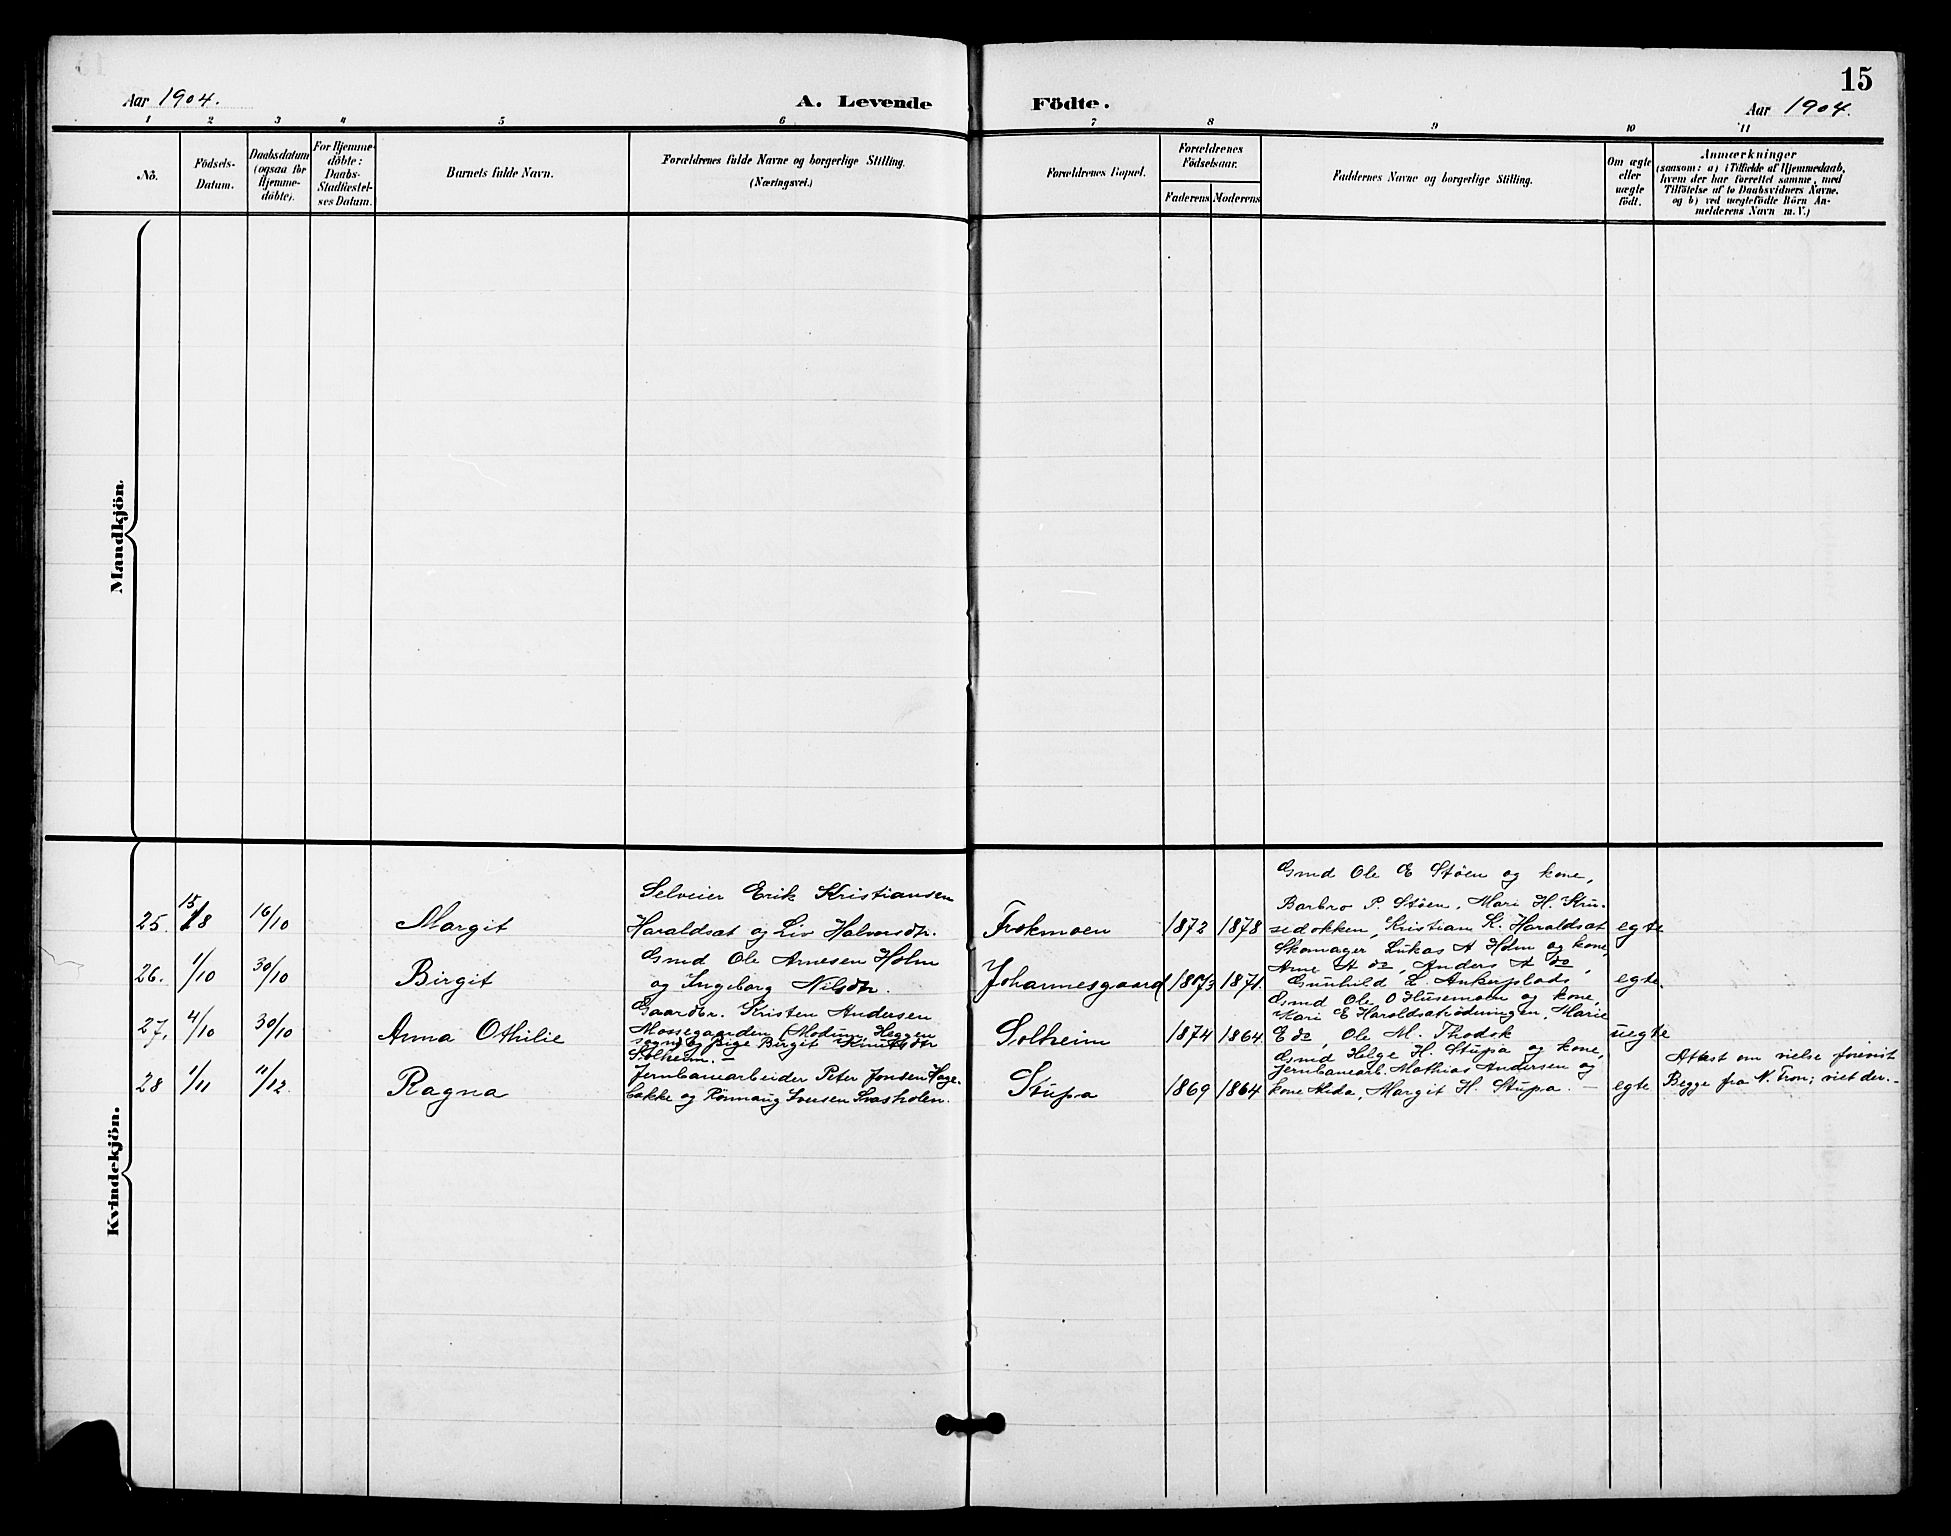 15
Aar 1904.
A. Levende
Födte.
Aar 1904.
1 2 3 4 5 6 7 8 9 10 11
Nö.
Födsels-
Datum.
Daabsdatum
(ogsaa for
Hjemme-
döbte).
For Hjemme-
döbte:
Daabs-
Stadfæstel-
ses Datum.
Barnets fulde Navn.
Forældrenes fulde Navne og borgerlige Stilling.
(Næringsvei.)
Forældrenes Bopæl.
Forældrenes
Födselsaar.
Faderens
Moderens
Faddernes Navne og borgerlige Stilling.
Om ægte
eller
uægte
födt.
Anmærkninger
(saasom: a) i Tilfælde af Hjemmedaab,
hvem der har forrettet samme, med
Tilföielse af to Daabsvidners Navne.
og b) ved uægtefödte Börn An-
melderens Navn m. V.)
Mandkjön.
Kvindekjön.
25. 15/8 16/10 Margit
Selveier Erik Kristiansen
Haraldsat og Liv Halvorsdtr.
Trokmoen 1872 1878
Gmd Ole E Støen og kone,
Barbro P. Støen, Mari H. Kru-
sedokken, Kristian K. Haraldsat
egte
26. 1/10 30/10 Birgit
Gmd Ole Arnesen Holm
og Ingeborg Nilsdtr.
Johannesgaard 1873 1871.
Skomager Lukas A Holm og kone,
Arne A do, Anders A do,
Gunhild L. Ankerplads
egte.
27. 4/10 30/10 Anna Othilie
Gaardbr. Kristen Andersen
Mossegaarden (Modum, Heggen
sogn) og pige Birgit Knutsdtr
Solheim.
Solheim 1874 1864
Gmd Ole O Husemoen og kone,
Mari E Haroldsatrødningen, Marie
E do, Ole M. Thodsk
uegte
28 1/11 11/12. Ragna
Jernbanearbeider Peter Jonsen Hage-
bakke og Rønnaug Iversen Svasholen.
Stupa 1869 1864
Gmd Helge H. Stupa og kone,
Jernbanearb. Mathias Andersen og
kone Alida, Margit H. Stupa. —
egte
Attest om vielse forevist
Begge fra N. Fron; viet der. -